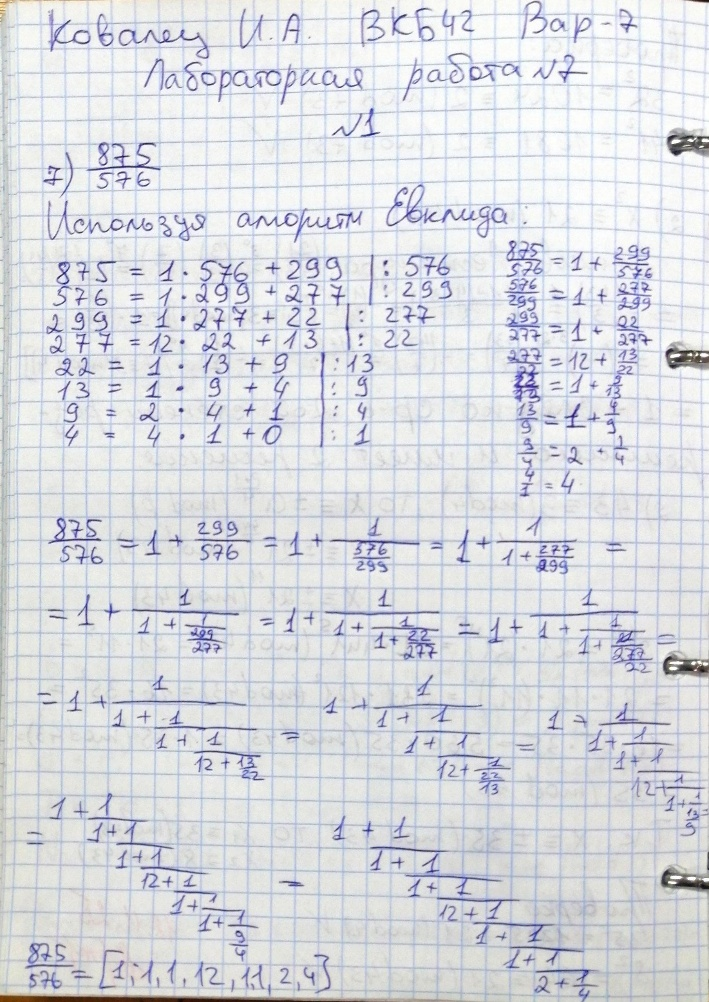 Ковалец И.А. ВКБ42 Вар-7
Лабораторная работа №7
№1
7) 875/576
Используя алгоритм Евклида:
875 = 1 · 576 + 299 |: 576
576 = 1 · 299 + 277 |: 299
299 = 1 · 277 + 22 |: 277
277 = 12 · 22 + 13 |: 22
22 = 1 · 13 + 9 |: 13
13 = 1 · 9 + 4 |: 9
9 = 2 · 4 + 1 |: 4
4 = 4 · 1 + 0 |: 1
875/576 = 1 + 299/576
576/299 = 1 + 277/299
299/277 = 1 + 22/277
277/22 = 12 + 13/22
22/13 = 1 + 9/13
13/9 = 1 + 4/9
9/4 = 2 + 1/4
4/1 = 4
875/576 = 1 + 299/576 = 1 + 1/(576/299) = 1 + 1/(1 + 277/299) =
= 1 + 1/(1 + 1/(299/277)) = 1 + 1/(1 + 1/(1 + 22/277)) = 1 + 1/(1 + 1/(1 + 1/(277/22))) =
= 1 + 1/(1 + 1/(1 + 1/(12 + 13/22))) = 1 + 1/(1 + 1/(1 + 1/(12 + 1/(22/13)))) = 1 + 1/(1 + 1/(1 + 1/(12 + 1/(1 + 1/(13/9))))) =
= 1 + 1/(1 + 1/(1 + 1/(12 + 1/(1 + 1/(1 + 1/(9/4)))))) = 1 + 1/(1 + 1/(1 + 1/(12 + 1/(1 + 1/(1 + 1/(2 + 1/4))))))
875/576 = [1; 1, 1, 12, 1, 1, 2, 4]